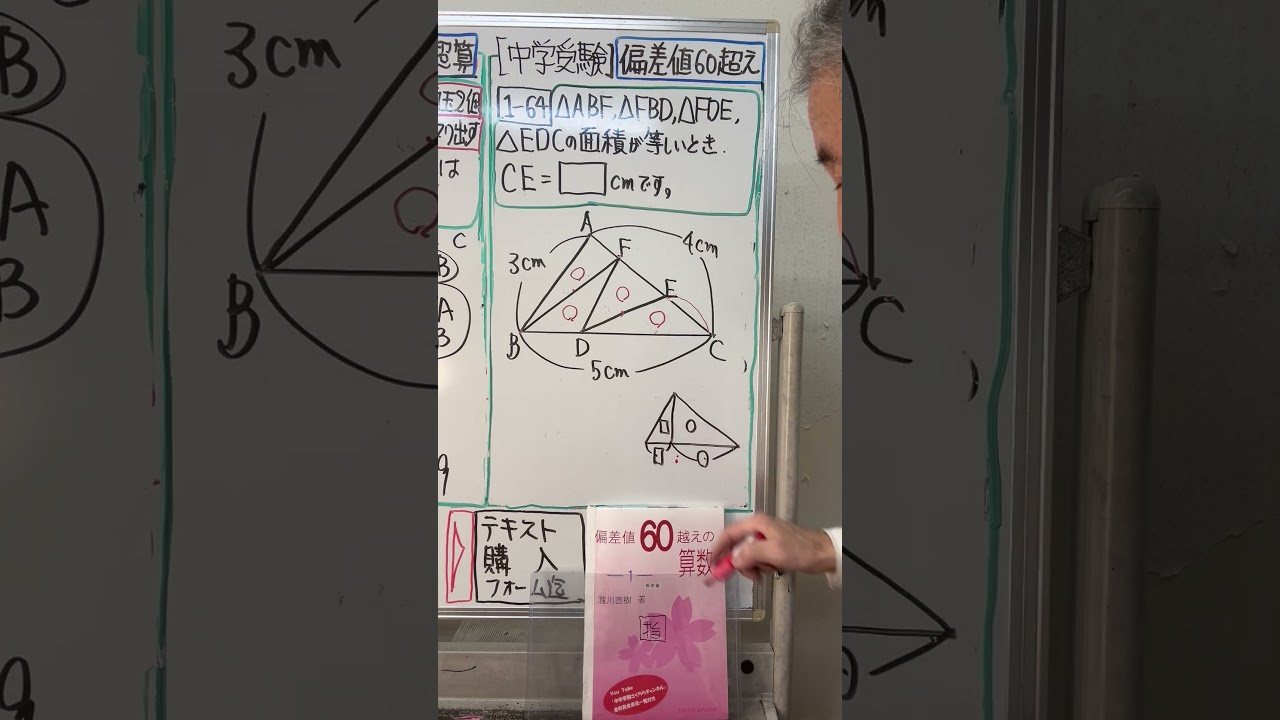 [中学受験]偏差値60超え
1-64 △ABF,△FBD,△FDE,
△EDCの面積が等しいとき.
CE=□cmです。
A
F
4cm
3cm
E
B
D
C
5cm
テキスト
購入
フォーム
偏差値60越えの
算数
—1—
瀧川直樹 著
指
You Tube
3cm
B
A
B
B
C
超算
玉2個
り出す
は
C
B
A
B